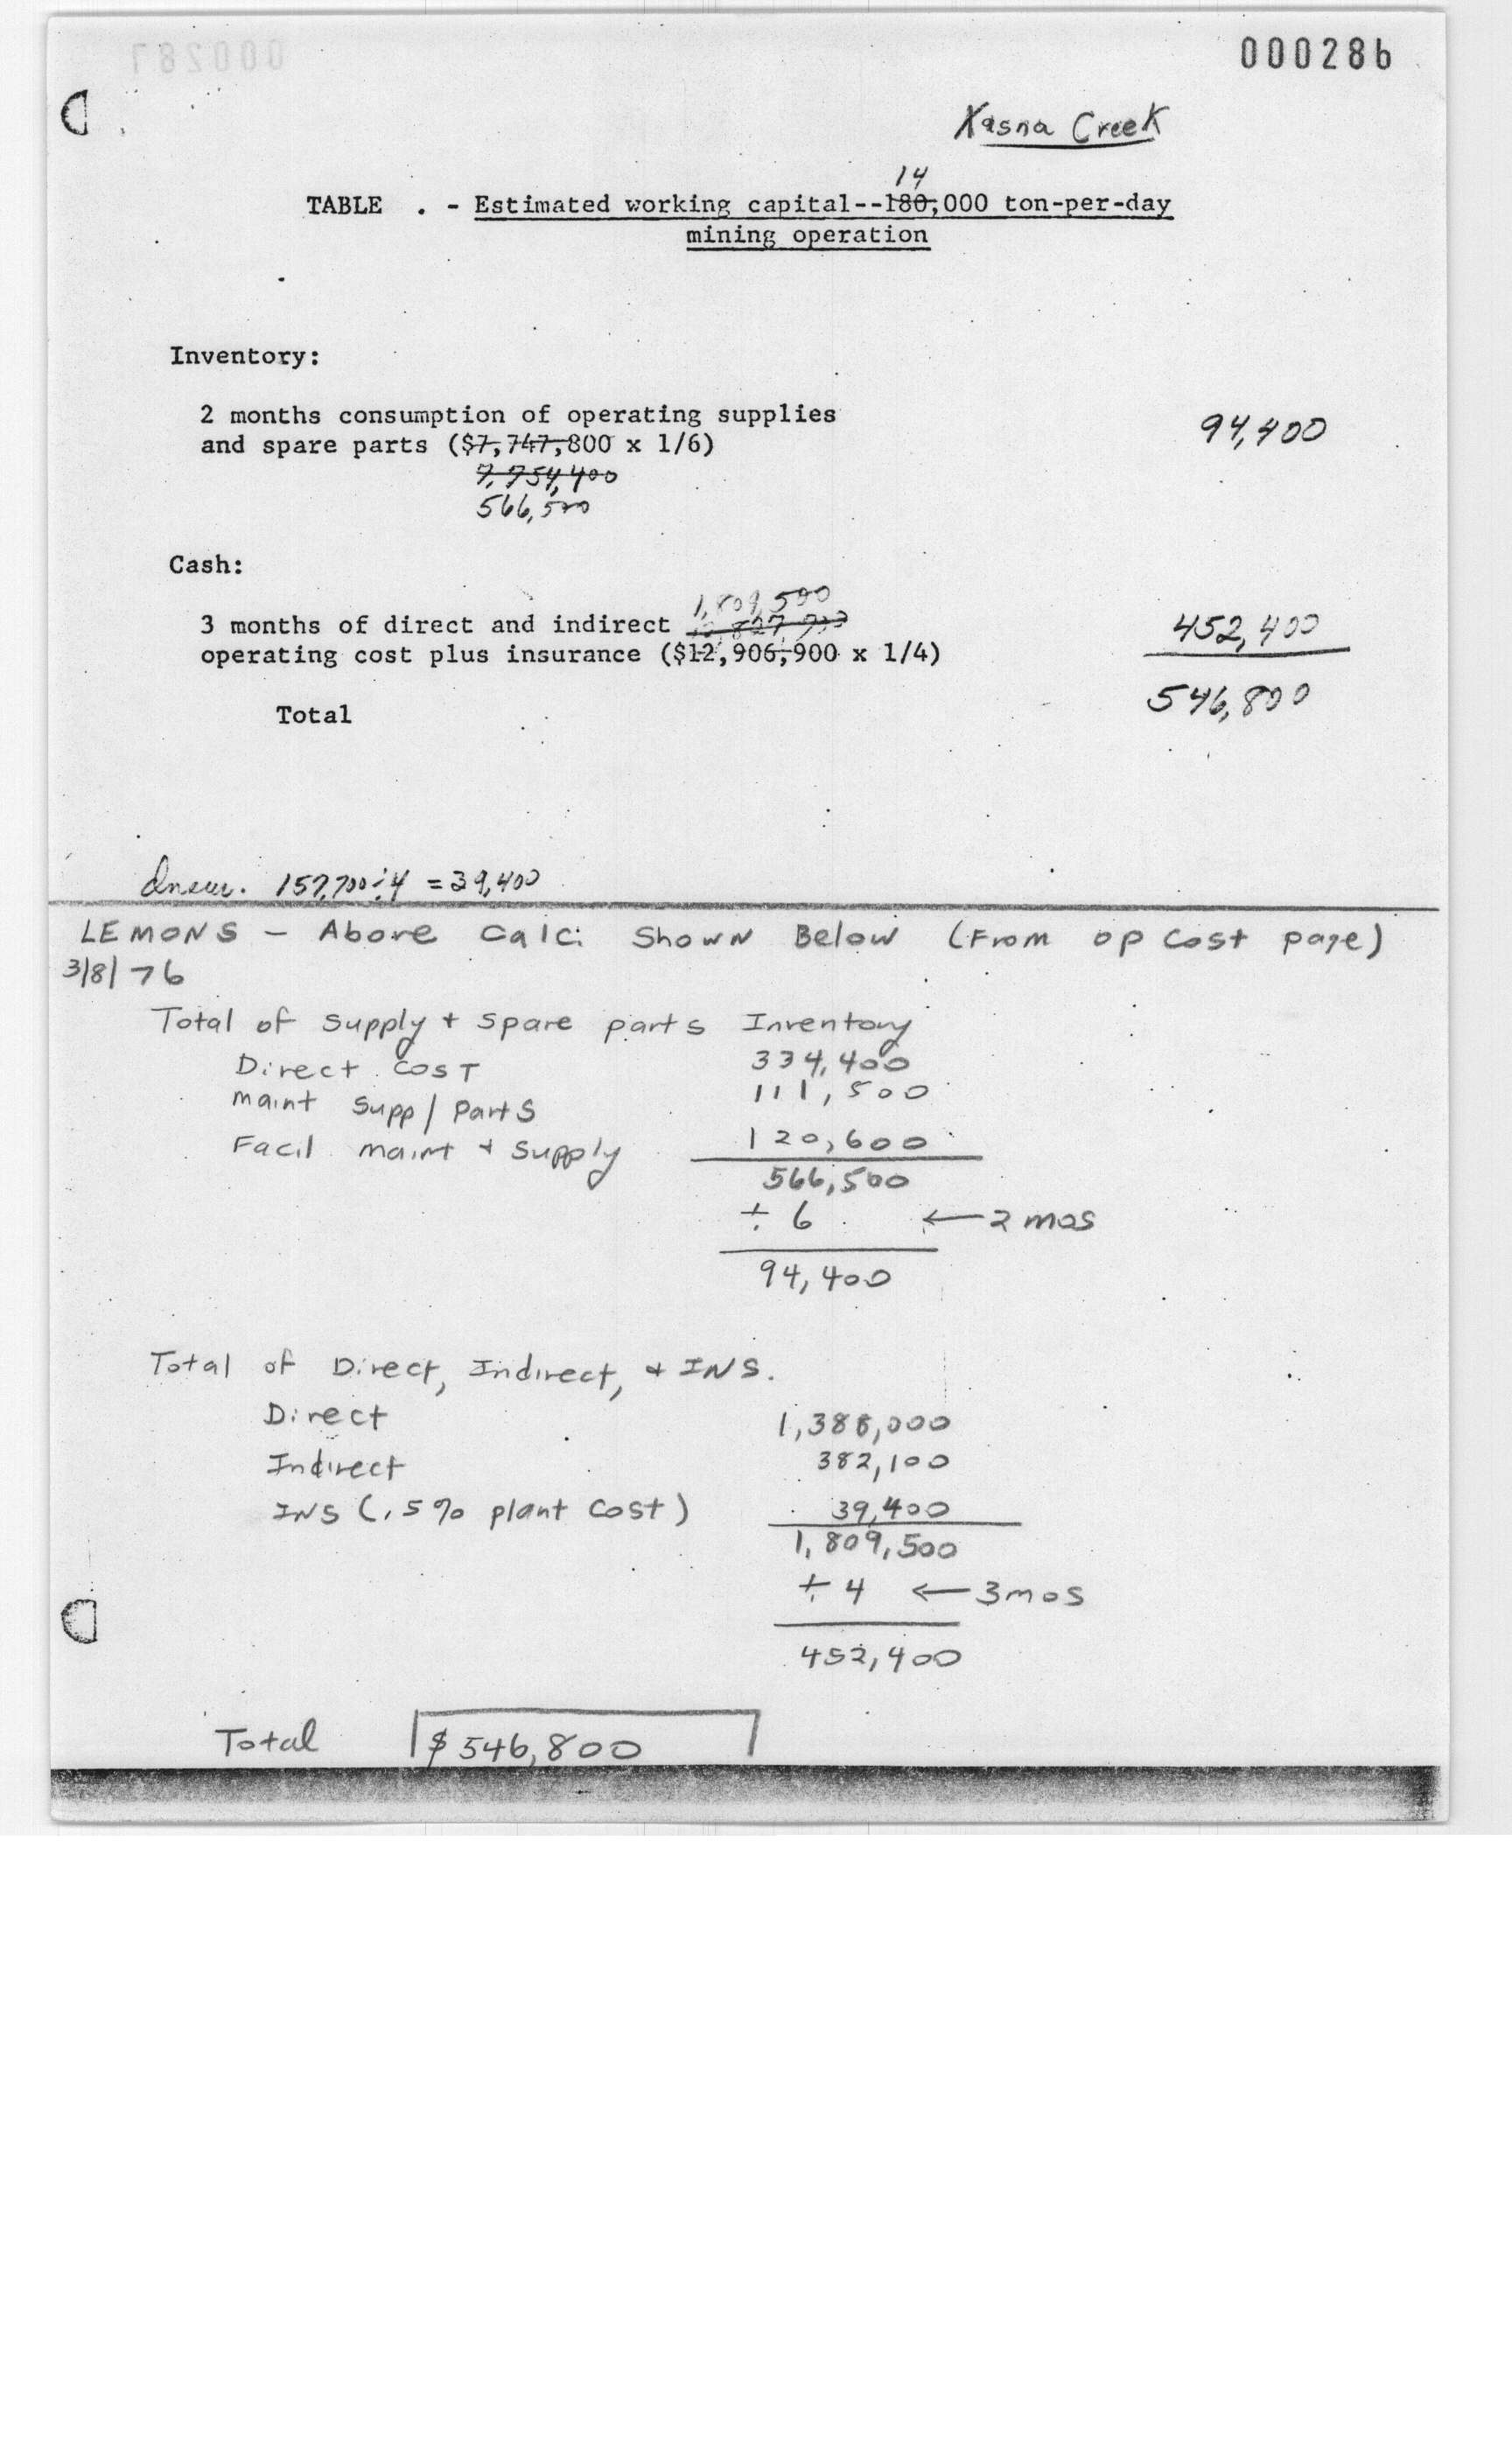 000286
Kasna Creek
14
TABLE . - Estimated working capital--180,000 ton-per-day
mining operation
Inventory:
2 months consumption of operating supplies
and spare parts ($7,747,800 x 1/6) 94,400
7,754,400
566,500
Cash:
1,809,500
3 months of direct and indirect 452,400
operating cost plus insurance ($12,906,900 x 1/4)
Total 546,800
Insur. 157,700÷4 = 39,400
LEMONS - Above Calc: Shown Below (From op Cost page)
3/8/76
Total of Supply + Spare parts Inventory
Direct Cost 334,400
Maint Supp/Parts 111,500
Facil maint + Supply 120,600
566,500
÷ 6 ← 2 mos
94,400
Total of Direct, Indirect, + INS.
Direct 1,388,000
Indirect 382,100
INS (.5% plant Cost) 39,400
1,809,500
÷ 4 ← 3mos
452,400
Total $546,800